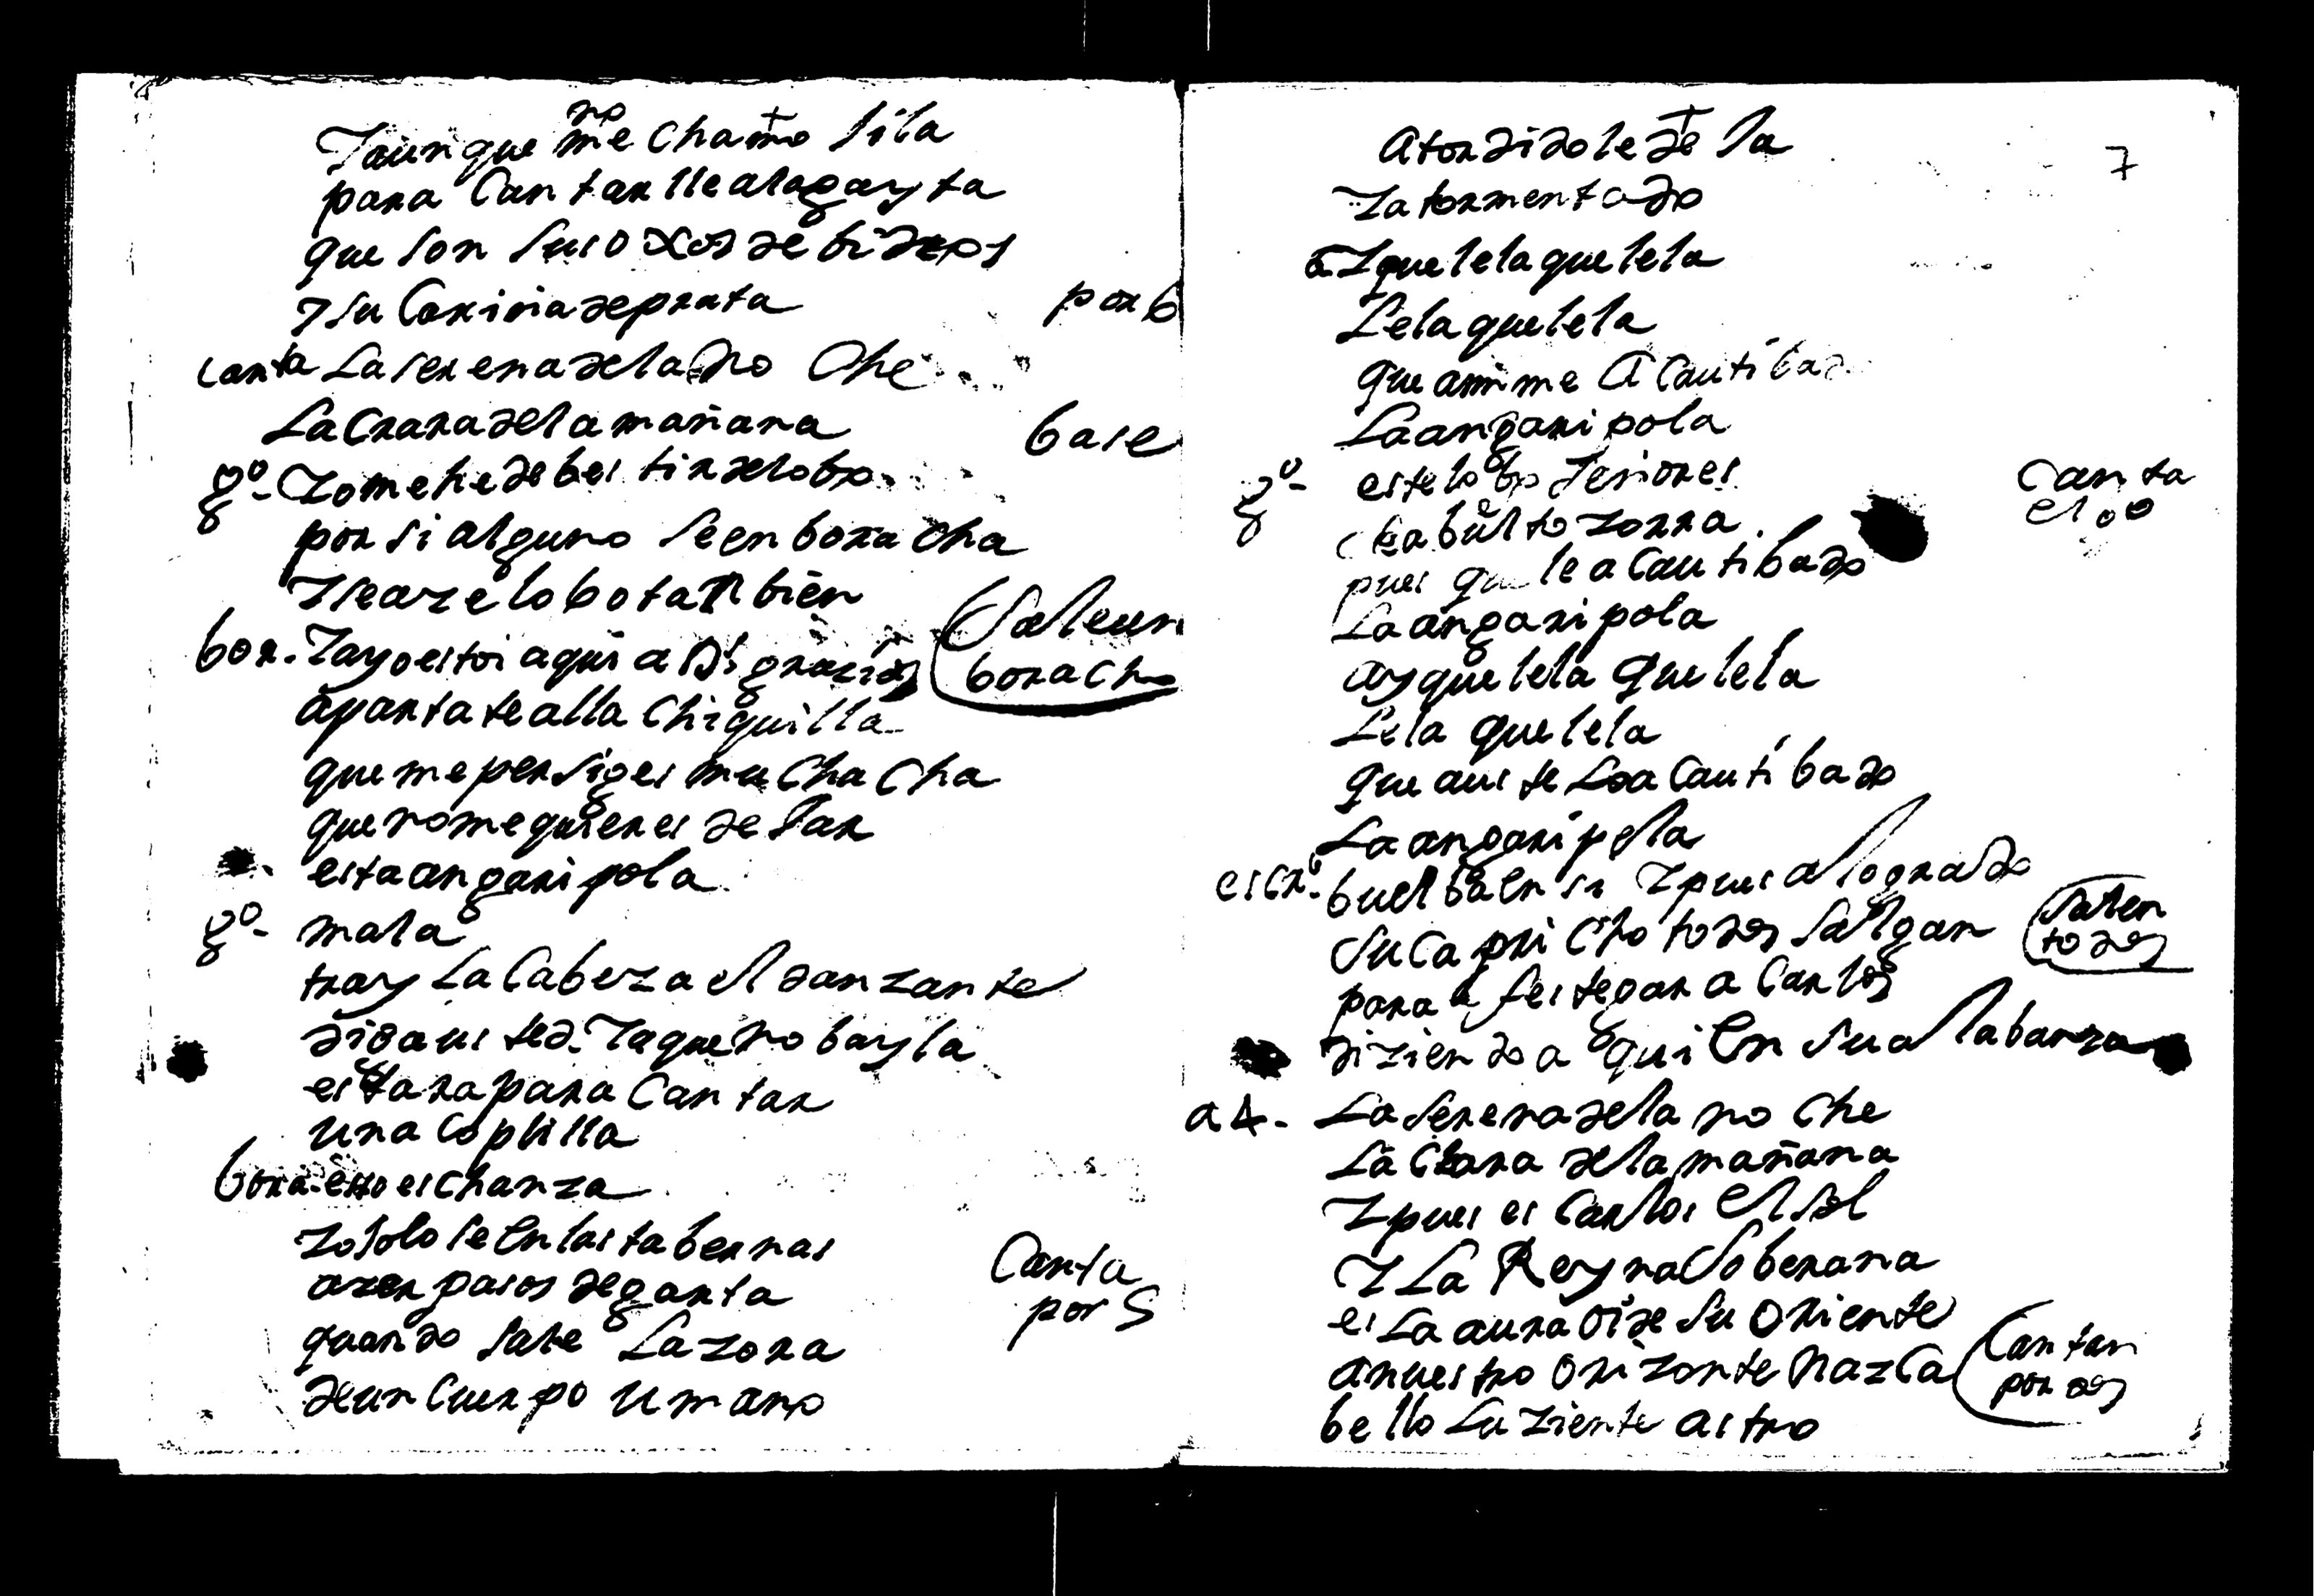 Iaunque no me chamo sila
para Cantarlle a la gayta
que son sus oxos de bidros
y su Cariña de prata
por b
canta La serena de la no che
La Crara de la mañana
base
g^o- Io me he de bestir de lobo
por si alguno se enboracha
I se aze lobo tanbien
bor. I ayo estoi aqui a Ds grazias
(Sale un boracho
apartate alla chiquilla
que me persiges muchacha
que no me quieres dejar
esta angaripola
g^o- mala
tray La Cabeza el danzante
diga usted. I a que no bayla
estara para Cantar
una Coplilla
bora- esso es chanza
Io solo se En las tabernas
azer pasos de ganta
Canta por S
quando sale La zora
de un Cuerpo umano
7
Atordidole de la
I atormentado
a I que lela que lela
Lela que lela
que a mi me a Cautibado
La angaripola
g^o- este lobo señores
Canta el g^o
bulto zorra
pues que le a Cautibado
La angaripola
ay que lela que lela
Lela que lela
que a uste Lo a Cautibado
La angaripola
escr^o. buelba En si I pues a logrado
su Capricho todos salgan
(salen todos
para festegar a Carlos
diziendo aqui En su alabanza
a 4- La serena de la no che
La Clara de la mañana
I pues es Carlos El sol
I La Reyna Soberana
es La aurora oi de su Oriente
a nuestro Orizonte NazCa
(Cantan por dos
bello Luziente astro